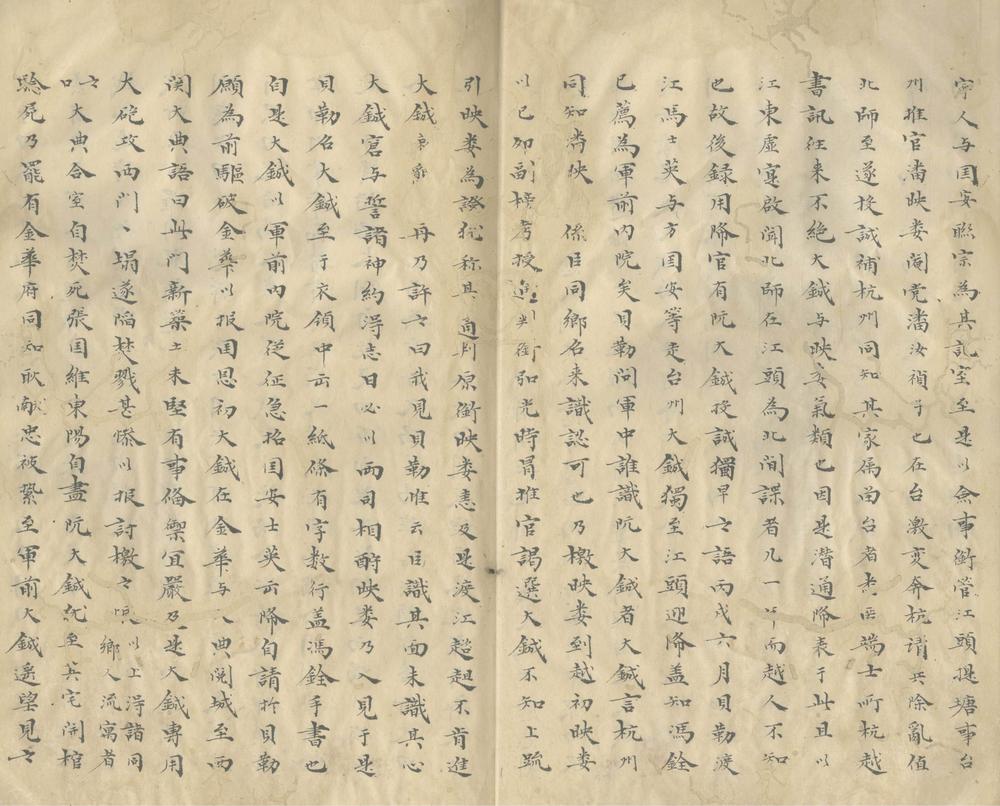 寜人与囯安聮宗為其記室至是以僉事銜管江頭提塘事台
州推官潘映娄閹党潘汝禎子也在台激变奔杭谓兵除亂值
北师至遂投誠補杭州同知其家属畄台者李匡端士所杭越
書訊往来不絶大鋮与映娄氣類也因是潜通降表于此且以
江東虚寔啟闻北师在江頭為北间諜者几一年而越人不知
也故後録用降官有阮大鋮投誠獨早之語丙戌六月貝勒渡
江馬士英与方囯安等走台州大鋮獨至江頭迎降盖知馮銓
已薦為軍前内院矣貝勒问軍中誰識阮大鋮者大鋮言杭州
同知潘映　係臣同鄉名来識認可也乃檄映娄到越初映娄
以巳加副榜考授通判銜弘光時冐推官謁選大鋮不知上疏
引映娄為證犹称其通判原銜映娄恚及是渡江趦趄不肯進
大鋮　　再乃許之曰我見貝勒惟云臣識其面未識其心
大鋮窘与誓諸神約淂志日必以两司相酧映娄乃入見于是
貝勒名大鋮至于衣領中出一紙條有字数行盖馮銓手書也
自是大鋮以軍前内院従征急招囯安士英出降自請於貝勒
願為前驅破金華以报囯恩初大鋮在金華与大典阅城至西
関大典語曰此门新築土未堅有事俻禦宜嚴及是大鋮専用
大砲攻西门门塌遂陥焚戮甚惨以报討檄之恨以上淂諸同鄉人流寓者
云大典合室自焚死張囯維東陽自盡阮大鋮統至其宅開棺
騐死乃罷有金華府同知耿献忠被縶至軍前大鋮遙望見之